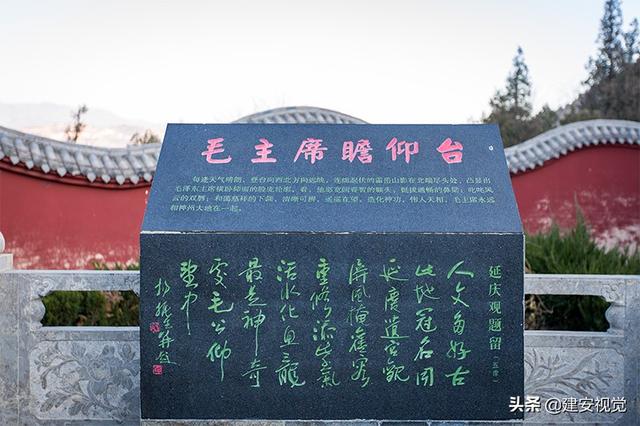 毛主席瞻仰台
每逢天气晴朗，登台向西北方向远眺，连绵起伏的山影在北端尽头处，凸显出
毛泽东主席横卧仰面的脸庞轮廓。看，他那宽阔睿智的额头，挺拔通畅的鼻梁；叱咤风
云的双唇；和蔼慈祥的下颏，清晰可辨，遥遥在望，造化神功，伟人天相，毛主席永远
和神州大地在一起。
延庆观题留
人文多好古
此地冠名同
延庆遗宫观
屏风掩旧容
重修添紫气
活水化鱼龙
最是神奇
处毛公仰
望中
头条 @建安视觉